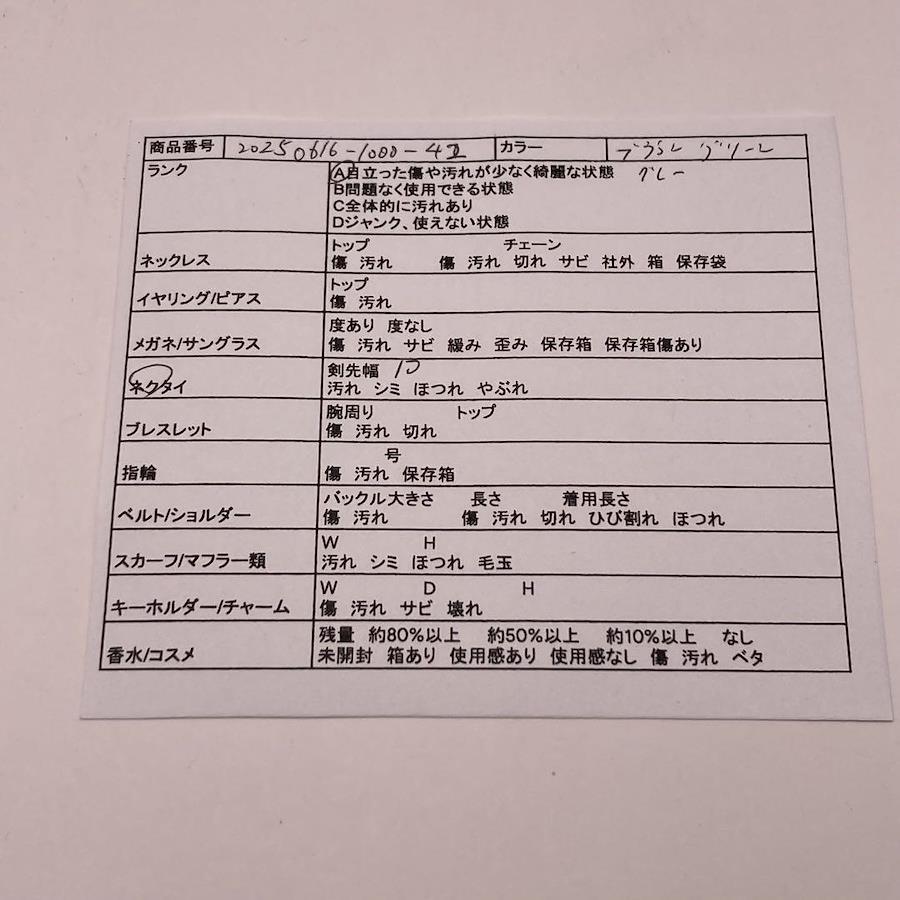 商品番号 20250616-1000-4 カラー ブラウン グリーン
ランク A目立った傷や汚れが少なく綺麗な状態 グレー
B問題なく使用できる状態
C全体的に汚れあり
Dジャンク、使えない状態
トップ チェーン
ネックレス 傷 汚れ 傷 汚れ 切れ サビ 社外 箱 保存袋
トップ
イヤリング/ピアス 傷 汚れ
度あり 度なし
メガネ/サングラス 傷 汚れ サビ 緩み 歪み 保存箱 保存箱傷あり
剣先幅 10
ネクタイ 汚れ シミ ほつれ やぶれ
腕周り トップ
ブレスレット 傷 汚れ 切れ
号
指輪 傷 汚れ 保存箱
バックル大きさ 長さ 着用長さ
ベルト/ショルダー 傷 汚れ 傷 汚れ 切れ ひび割れ ほつれ
W H
スカーフ/マフラー類 汚れ シミ ほつれ 毛玉
W D H
キーホルダー/チャーム 傷 汚れ サビ 壊れ
残量 約80%以上 約50%以上 約10%以上 なし
香水/コスメ 未開封 箱あり 使用感あり 使用感なし 傷 汚れ ベタ